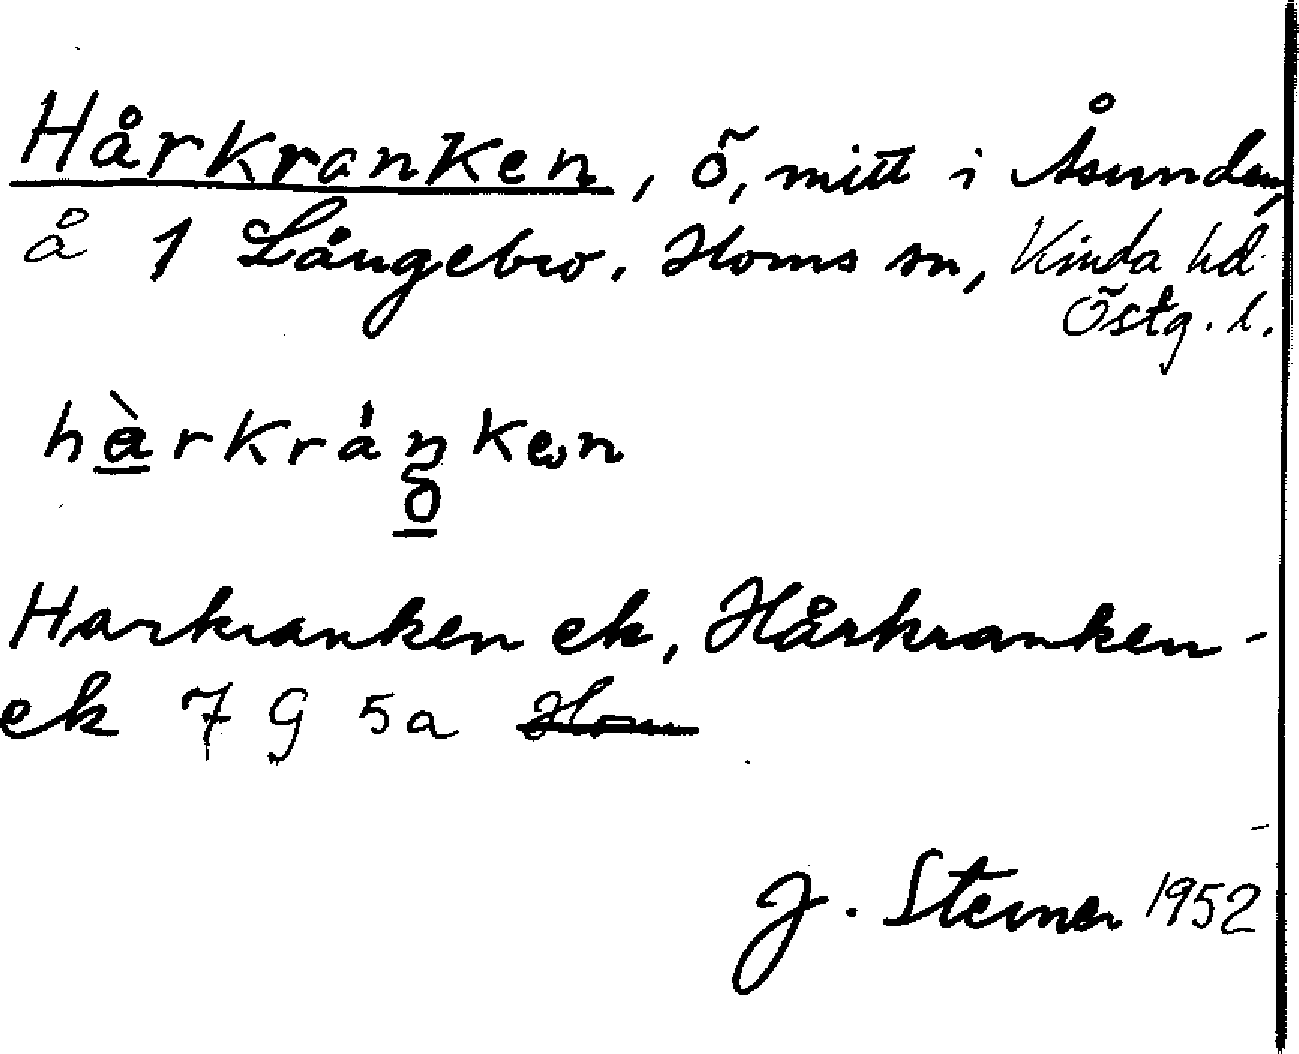 Hårkranken, ö, mitt i Åsunden,
å 1 Långebro. Horns sn, Kinda hd
Östg. l.
hàrkráŋken
o
Harkranken ek, Hårkranken-
ek 7 G 5a Horn
J. Steiner 1952